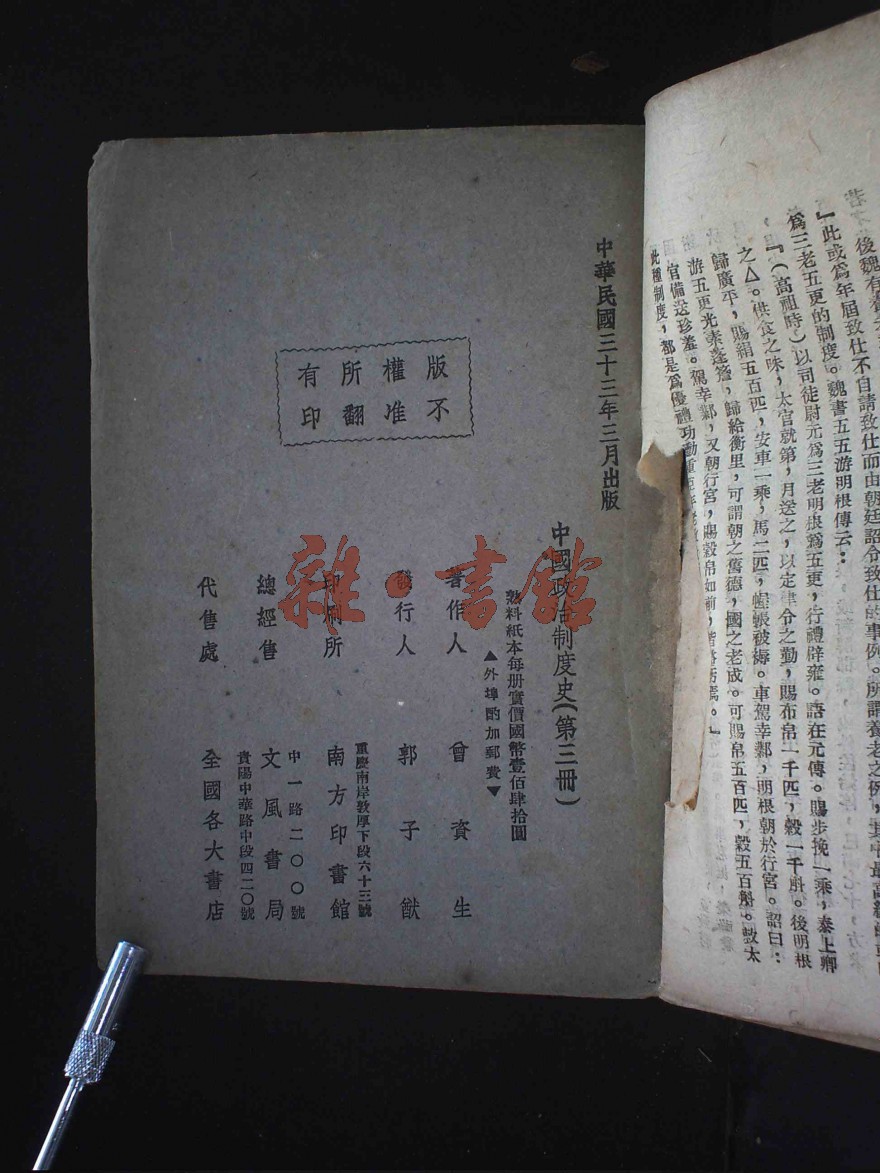 後魏有養老
』此或爲年届致仕不自請致仕而由朝廷詔令致仕的事例。所謂養老之例,其中最高級的
爲三老五更的制度。魏書五五游明根傳云:
『(高祖時)以司徒尉元爲三老明根爲五更,行禮辟雍。語在元傳。賜步挽一乘,泰上卿
之△。供食之味,太官就第,月送之,以定律令之勤,賜布帛一千匹,穀一千斛。後明根
歸廣平,賜絹五百匹,安車一乘,馬二匹,幄帳被褥。車駕幸鄴,明根朝於行宮。詔曰:
游五更光素蓬簷,歸給衡里,可謂朝之舊德,國之老成。可賜帛五百匹,穀五百斛。敕太
官備送珍羞。駕幸鄴,又朝行宮,賜穀帛如前,
此種制度,都是爲優禮功勳重臣
中華民國三十三年三月出版
中國政治制度史(第三冊)
熟料紙本每册實價國幣壹佰肆拾圓
▲外埠酌加郵費▼
著作人 曾資生
發行人 郭子猷
印刷所 南方印書館
重慶南岸敦厚下段六十三號
總經售 文風書局
中一路二〇〇號
貴陽中華路中段四二〇號
代售處 全國各大書店
版權所有
不准翻印
雜·書館